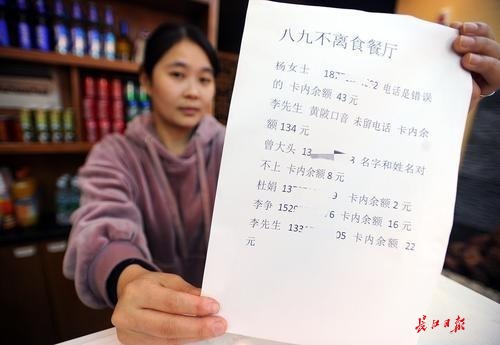 八九不离食餐厅
杨女士 18 2 电话是错误
的 卡内余额 43元
李先生 黄陂口音 未留电话 卡内余
额 134元
曾大头 13 3 名字和姓名对
不上 卡内余额8元
杜娟 13 9 卡内余额 2元
李争 152 6 卡内余额 16元
李先生 133 05 卡内余额 22
元
长江日报